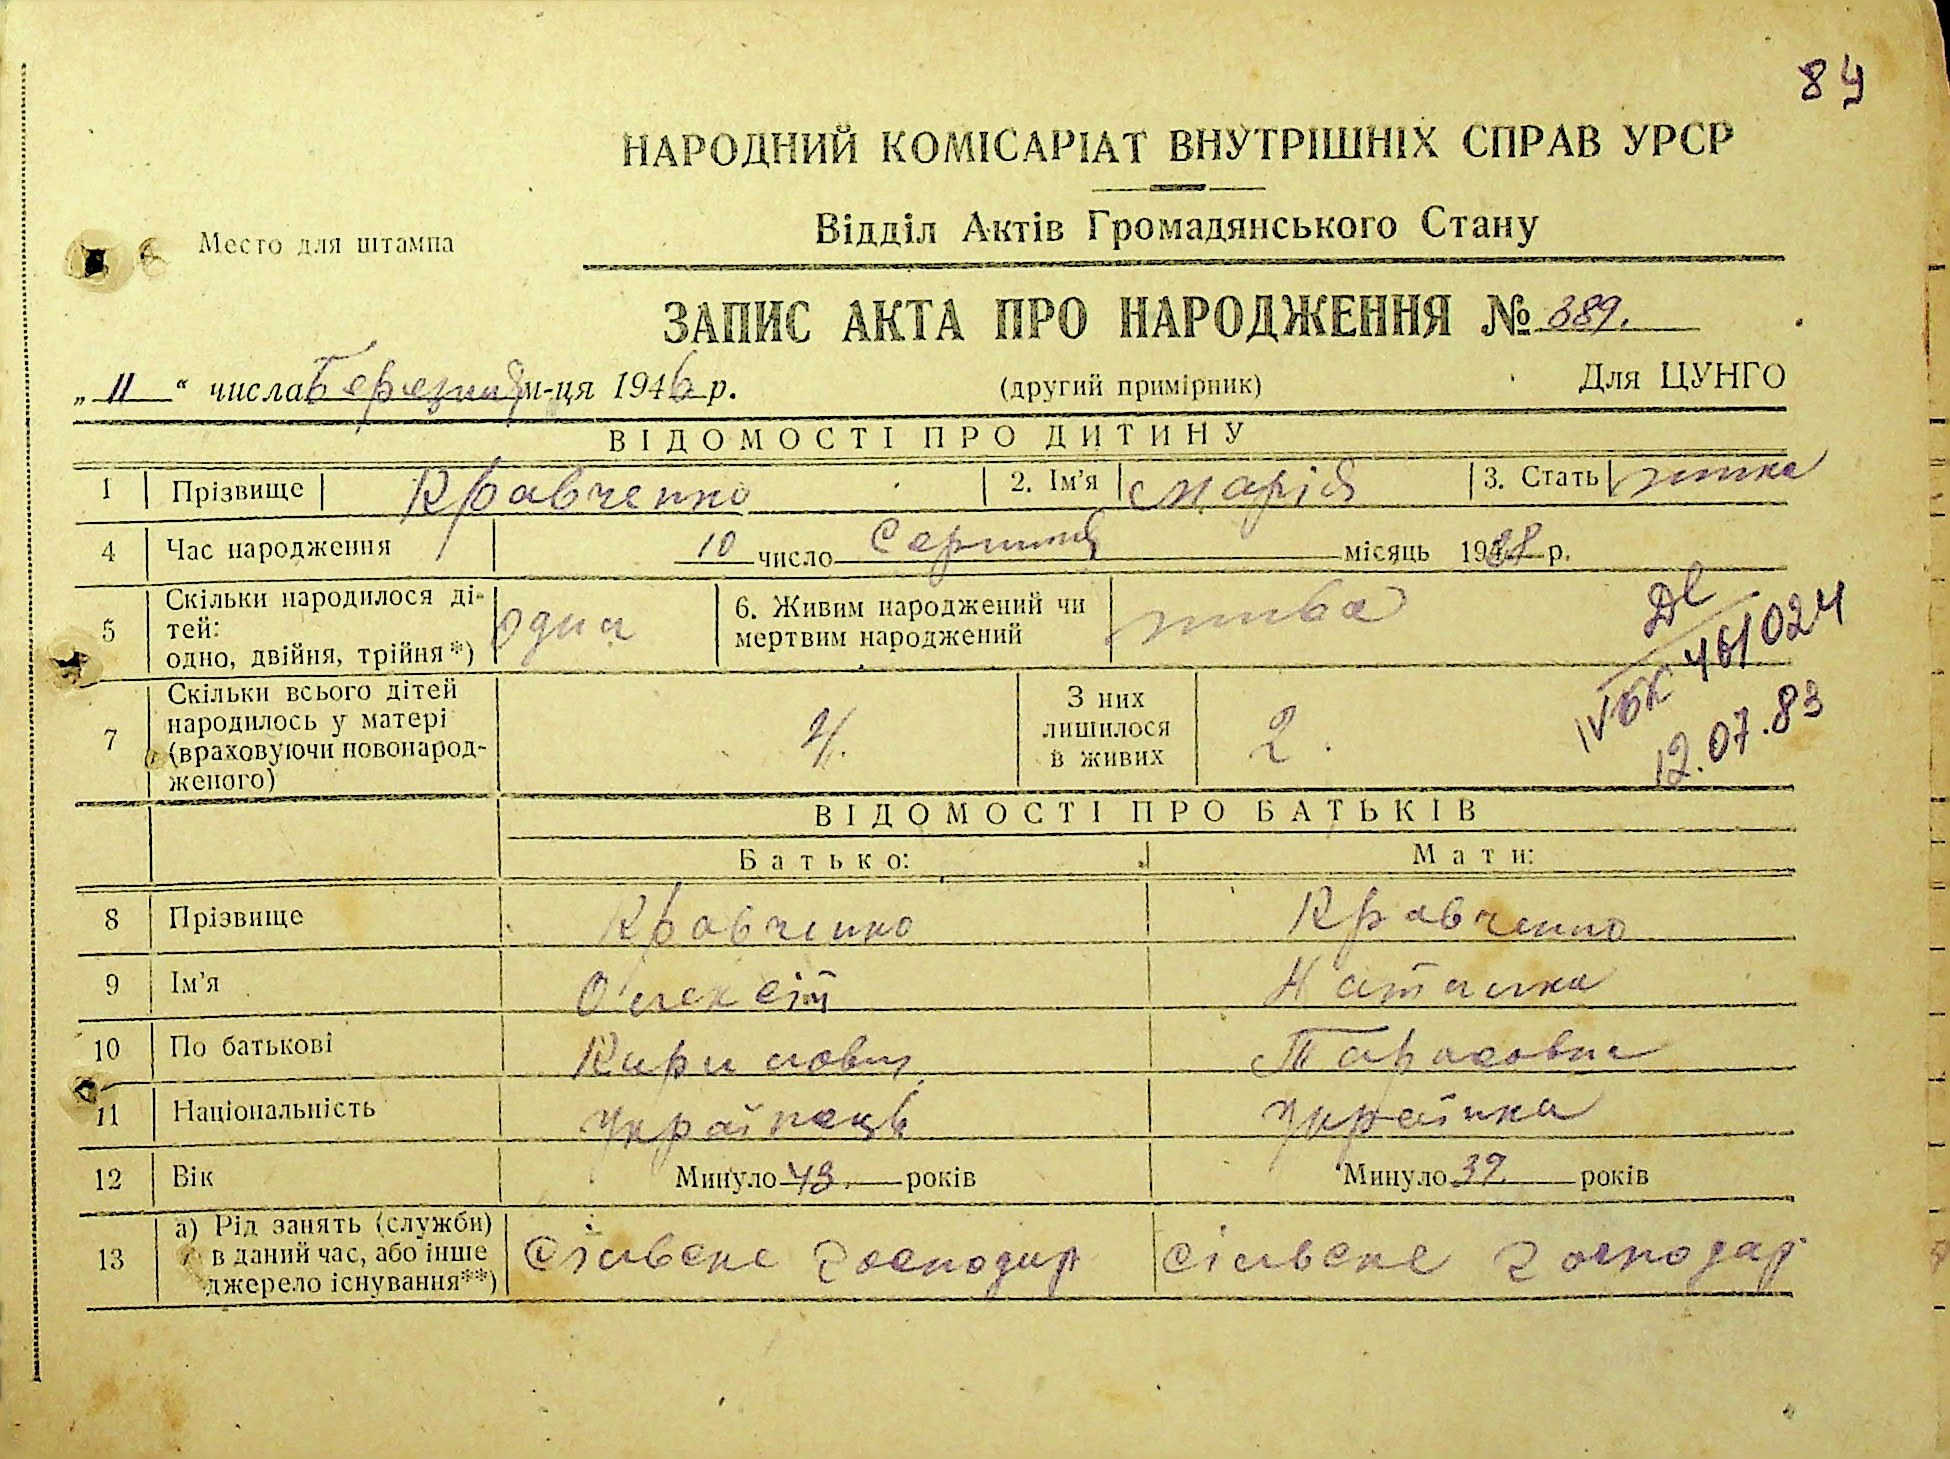 84
НАРОДНИЙ КОМІСАРІАТ ВНУТРІШНІХ СПРАВ УРСР
Место для штампа
Відділ Актів Громадянського Стану
ЗАПИС АКТА ПРО НАРОДЖЕННЯ № 389.
„ 11 “ числа Березня м-ця 1946 р. (другий примірник) Для ЦУНГО
ВІДОМОСТІ ПРО ДИТИНУ
1 Прізвище Кравченко 2. Ім'я Марія 3. Стать жінка
4 Час народження 10 число Серпня місяць 1938 р.
5 Скільки народилося ді-
тей:
одно, двійня, трійня*) одна
6. Живим народжений чи
мертвим народжений жива
7 Скільки всього дітей
народилось у матері
(враховуючи новонарод-
женого) 4.
З них
лишилося
в живих 2.
IVБК 461024
12.07.83
ВІДОМОСТІ ПРО БАТЬКІВ
Батько: Мати:
8 Прізвище Кравченко Кравченко
9 Ім'я Олексій Наталка
10 По батькові Кирилович Тарасовна
11 Національність Українець Українка
12 Вік Минуло 43. років Минуло 39. років
13 а) Рід занять (служби)
в даний час, або інше
джерело існування**) Сільське господар Сільське господар